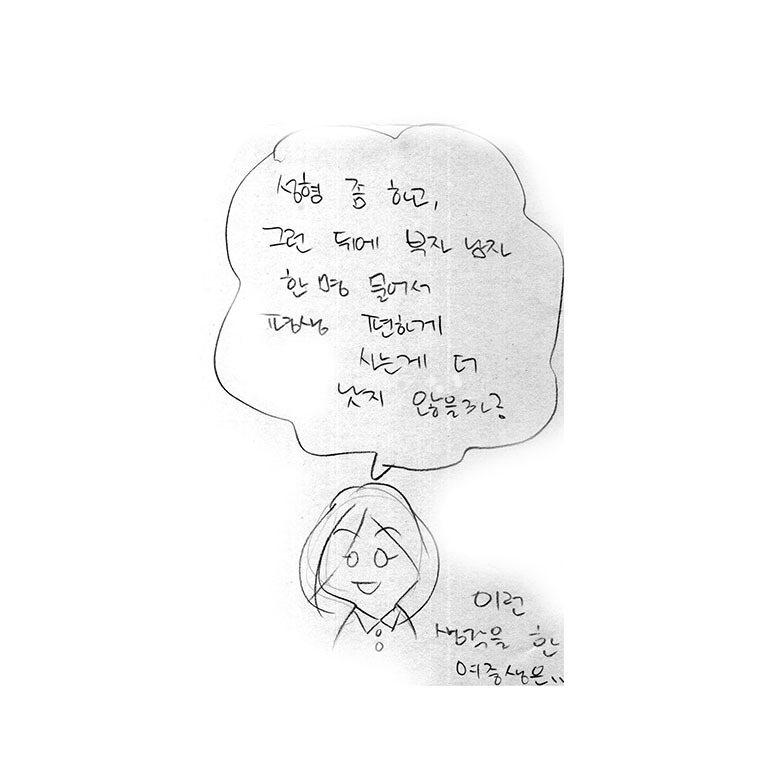 성형 좀 하고,
그런 뒤에 부자 남자
한 명 물어서
평생 편하게
사는게 더
낫지 않을까?
이런
생각을 한
여중생은..